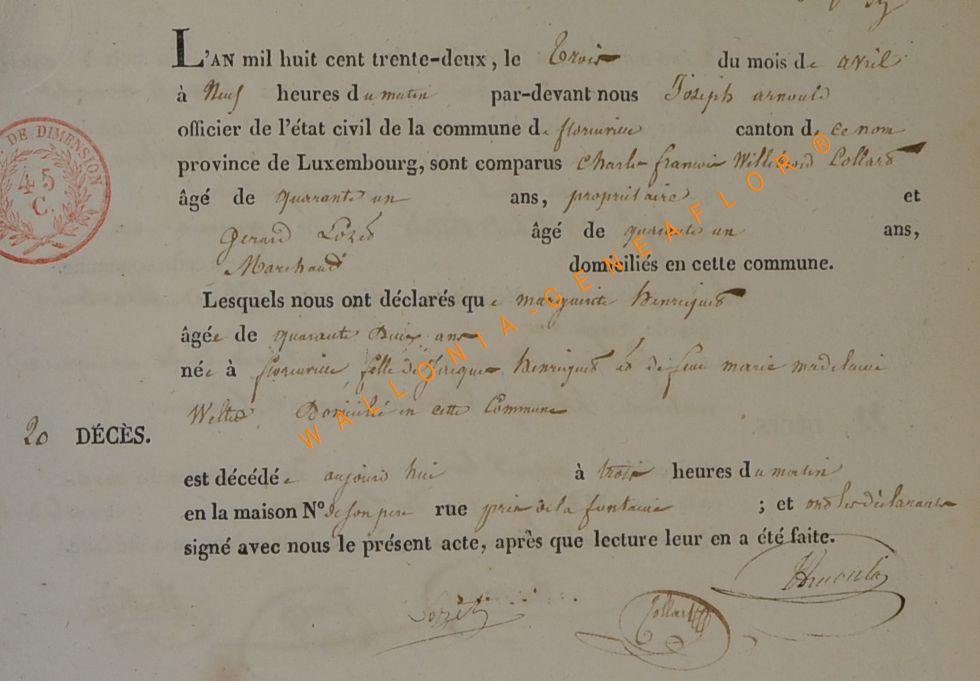 L'AN mil huit cent trente-deux, le Trois du mois de avril
à Neuf heures du matin par-devant nous Joseph arnould
officier de l'état civil de la commune de florenville canton de ce nom
province de Luxembourg, sont comparus Charle francois Willibrord Collard
âgé de quarante un ans, propriétaire et
Gerard Lozet âgé de quarante un ans,
Marchand domiciliés en cette commune.
Lesquels nous ont déclarés que marguerite henriquet
âgée de quarante Deux ans
née à florenville, fille de henriquet et de feue marie madelaine
Domicilié en cette Commune
20 DÉCÈS.
est décédée aujourd hui à trois heures du matin
en la maison N° de son pere rue près de la fontaine ; et ont les déclarants
signé avec nous le présent acte, après que lecture leur en a été faite.
Lozet Collard
DE DIMENSION
45
C.
WALLONIA-GENEAFLOR ®